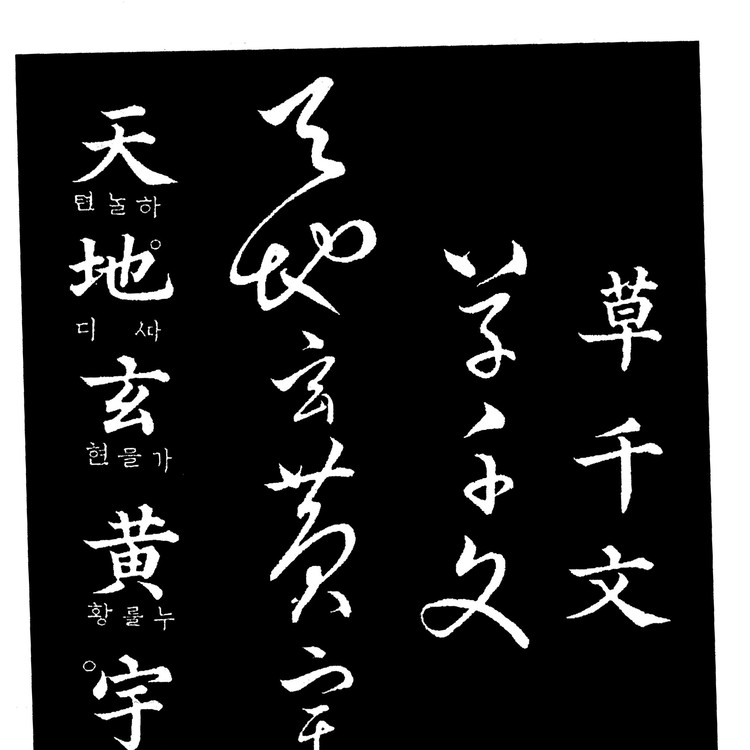 草千文
草千文
天地玄黄宇
天
하놀텬
地
싸디
玄
가믈현
黄
누를황
宇